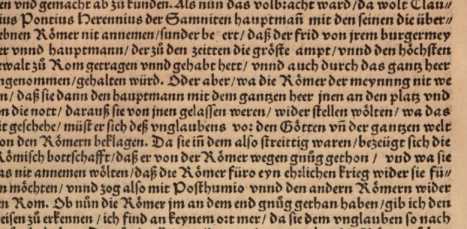 en vnd gemacht ab zů kunden. Als nůn das volbracht ward/ da wolt Clau⸗
ius Pontius Herennius der Samniten hauptmañ mit den seinen die über⸗
ebnen Römer nit annemen/ sunder be ert/ daß der frid von jrem burgermey
er vnnd hauptmann/ der zů den zeitten die gröste ampt/ vnnd den höchsten
ewalt zů Rom getragen vnnd gehabt hett/ vnnd auch durch das gantz heer
ngenommen/ gehalten würd. Oder aber/ wa die Römer der meynnng nit we
n/ daß sie dann den hauptmann mit dem gantzen heer jnen an den platz vnd
n die nott/ darauß sie von jnen gelassen weren/ wider stellen wölten/ wa das
it geschehe/ müst er sich deß vnglaubens vor den Götten vñ der gantzen welt
on den Römern beklagen. Da sie in dem also streittig waren/ bezeügt sich die
Römisch bottschafft/ daß er von der Römer wegen gnůg gethon/ vnd wa sie
as nit annemen wölten/ daß die Römer füro eyn ehrlichen krieg wider sie fü⸗
n möchten/ vnnd zog also mit Posthumio vnnd den andern Römern wider
en Rom. Ob nůn die Römer jm an dem end gnůg gethan haben/ gib ich den
eisen zů erkennen/ ich find an keynem ort mer/ da sie dem vnglauben so nach